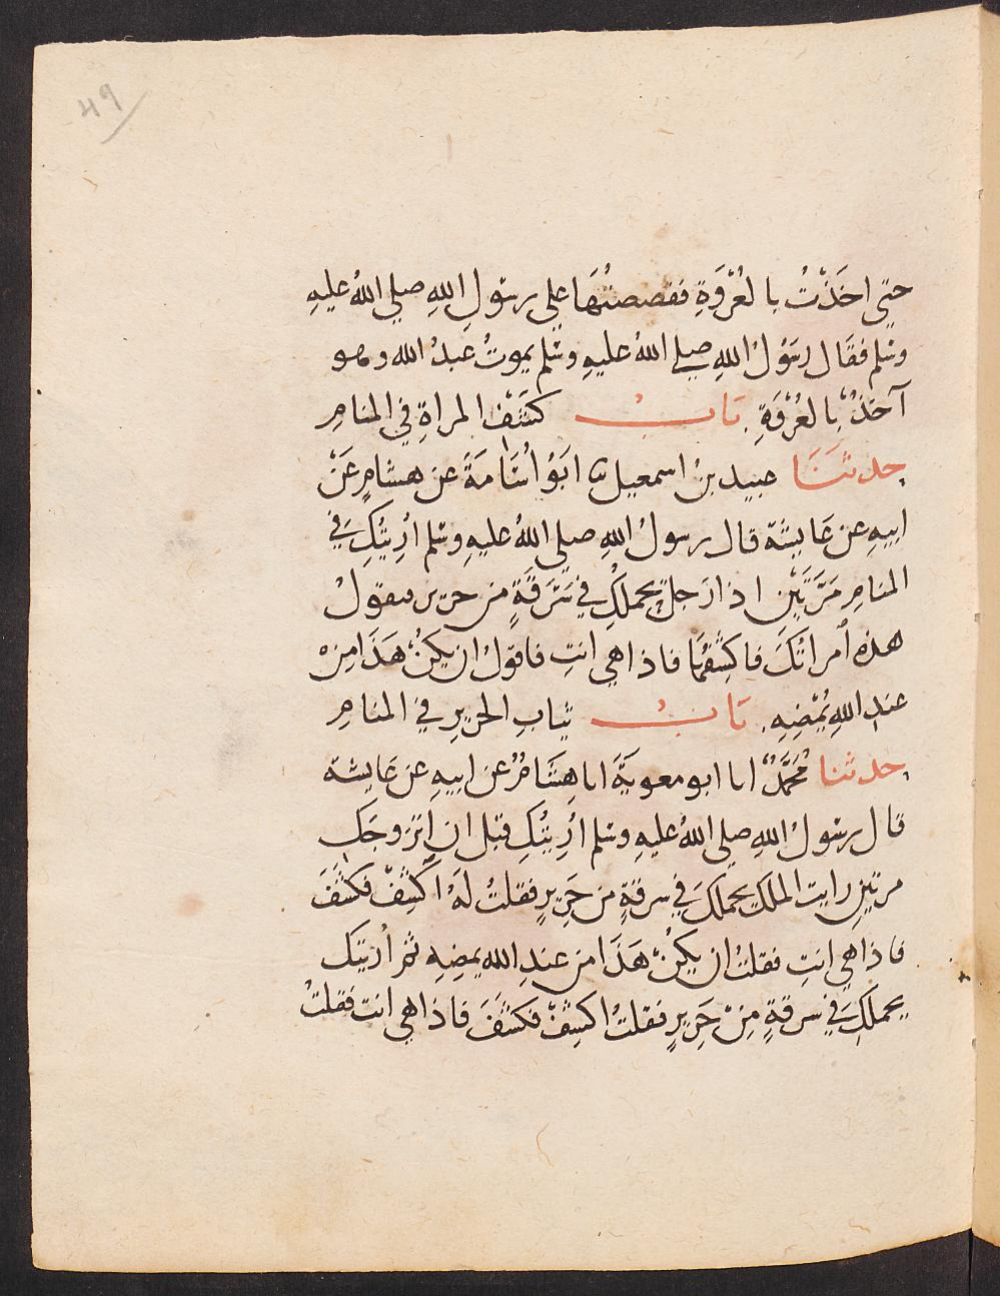 49
حتى اخَذْتُ بالعُرْوَةِ فقصصتُهَا على رسُولِ اللهِ صلى اللهُ عليهِ
وسَلم فقَال رسَوُلُ اللهِ صلى اللهُ عليهِ وسَلم يموتُ عبدُ الله وهو
آخذٌ بالعُرْوَةِ. بَابُ كشَفْ المراةِ في المنامِ
حدثَنَا عبيد بنُ اسمعيل ثنا ابَوُ اُسَامَةَ عن هشامٍ عَنْ
ابيهِ عن عَايشة قال رسولُ اللهِ صلى اللهُ عليهِ وسَلم اُرِيتُكِ في
المنامِ مَرَّتَيْن اذا رَجلٌ يحملكِ في سَرَقَةٍ من حرير فيقولُ
هذه اُمراتُكَ فاكشِفُهَا فاذا هي انتِ فاقولُ ان يكنْ هَذَا مِن
عندِ اللهِ يُمْضِهِ. بَابُ ثيابِ الحريرِ في المنامِ
حدثنا مُحَمَّدٌ انا ابو معويَةَ انا هِشَامٌ عن ابيهِ عن عَايشة
قال رسُولُ اللهِ صلى اللهُ عليهِ وسَلم اُرِيتُكِ قبل ان اتزوجَكِ
مرتينِ رايت الملَكَ يحملكِ في سرقةٍ من حَرِيرٍ فقلتُ لَهُ اكْشِفْ فكشَفَ
فاذا هي انتِ فقلتُ ان يكنْ هَذَا من عندِ الله يمضِهِ ثم اُريتكِ
يحملكِ في سرقةٍ مِنْ حَرِيرٍ فقلتُ اكشِفْ فكشَفَ فاذا هي انتِ فقلتُ